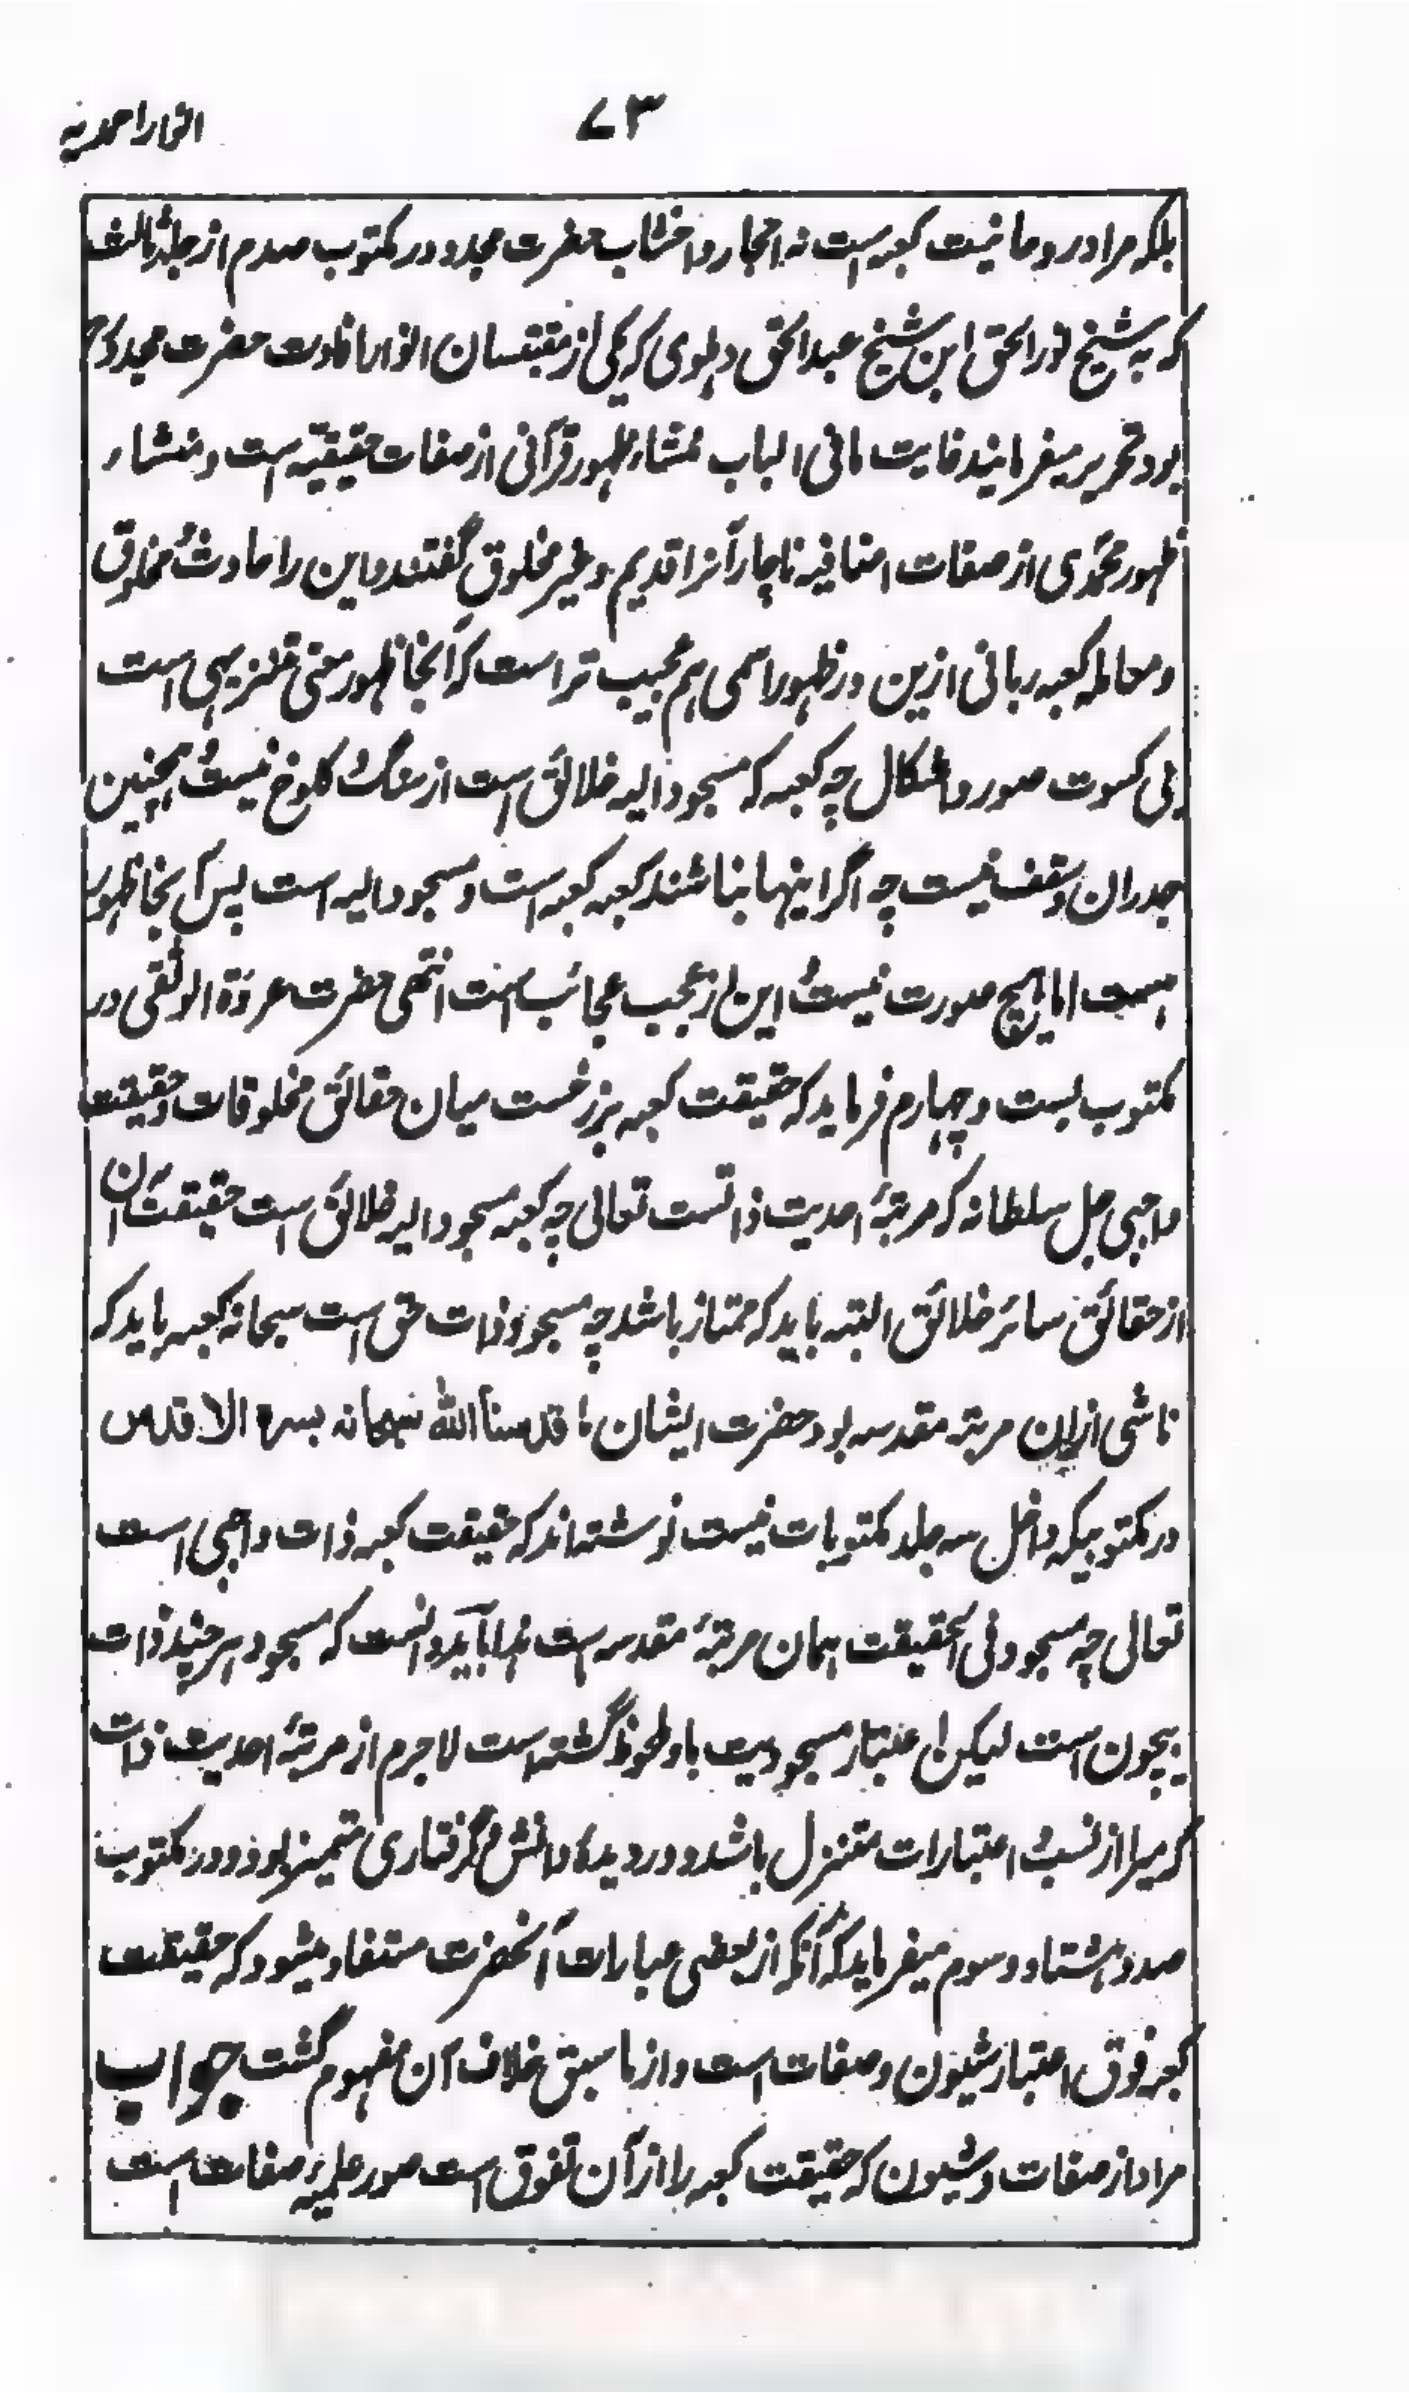 ۷۳
انوار احمدیه
بلکه مراد روحانیت کعبه است نه احجار و اخشاب حضرت مجدد در مکتوب صدم از جلد ثالث
که به شیخ نورالحق ابن شیخ عبدالحق دہلوی که یکی از مقتبسان انوار افادت حضرت مجدد
بود تحریر میفرمایند غایت ما فی الباب منشاء ظهور قرآنی از صفات حقیقیه است و منشاء
ظهور محمدی از صفات اضافیه ناچار آنرا قدیم و غیر مخلوق گفتند و این را حادث و مخلوق
و معامله کعبه ربانی ازین دو ظهور اسمی هم عجیب تر است که آنجا ظهور معنی تنزیهی است
بی کسوت صور و اشکال چه کعبه که مسجود الیه خلائق است از سنگ و کلوخ نیست و همچنین
جدران و سقف نیست چه اگر اینها نباشند کعبه کعبه است و مسجود الیه است پس آنجا ظهور
هست اما هیچ صورت نیست و این از عجب عجائب است انتهی حضرت عروة الوثقی در
مکتوب بست و چهارم فرماید که حقیقت کعبه برزخست میان حقائق مخلوقات و حقیقت
واجبی جل سلطانه که مرتبهٔ احدیت ذاتست تعالی چه کعبه مسجود الیه خلائق است حقیقت آن
از حقائق سائر خلائق البته باید که ممتاز باشد چه مسجود ذات حق است سبحانه کعبه باید که
ناشی ازان مرتبه مقدسه بود حضرت ایشان ما قدسنا الله سبحانه بسره الاقدس
در مکتوبیکه داخل سه جلد مکتوبات نیست نوشته اند که حقیقت کعبه ذات واجبی است
تعالی چه مسجود فی الحقیقت همان مرتبهٔ مقدسه است باید دانست که مسجود هر چند ذات
بیچون است لیکن اعتبار مسجودیت باو ملحوظ گشته است لاجرم از مرتبهٔ احدیت ذات
که مبرا از نسب و اعتبارات متنزل باشد و در دیده دانش و گرفتاری متمیز بود و در مکتوب
صد و هشتاد و سوم میفرماید که آنکه از بعضی عبارات آنحضرت مستفاد میشود که حقیقت
کعبه فوق اعتبار شیون و صفات است و از ما سبق خلاف آن مفهوم گشت جواب
مراد از صفات و شیون که حقیقت کعبه را از آن تفوق است صور علمیه صفات است